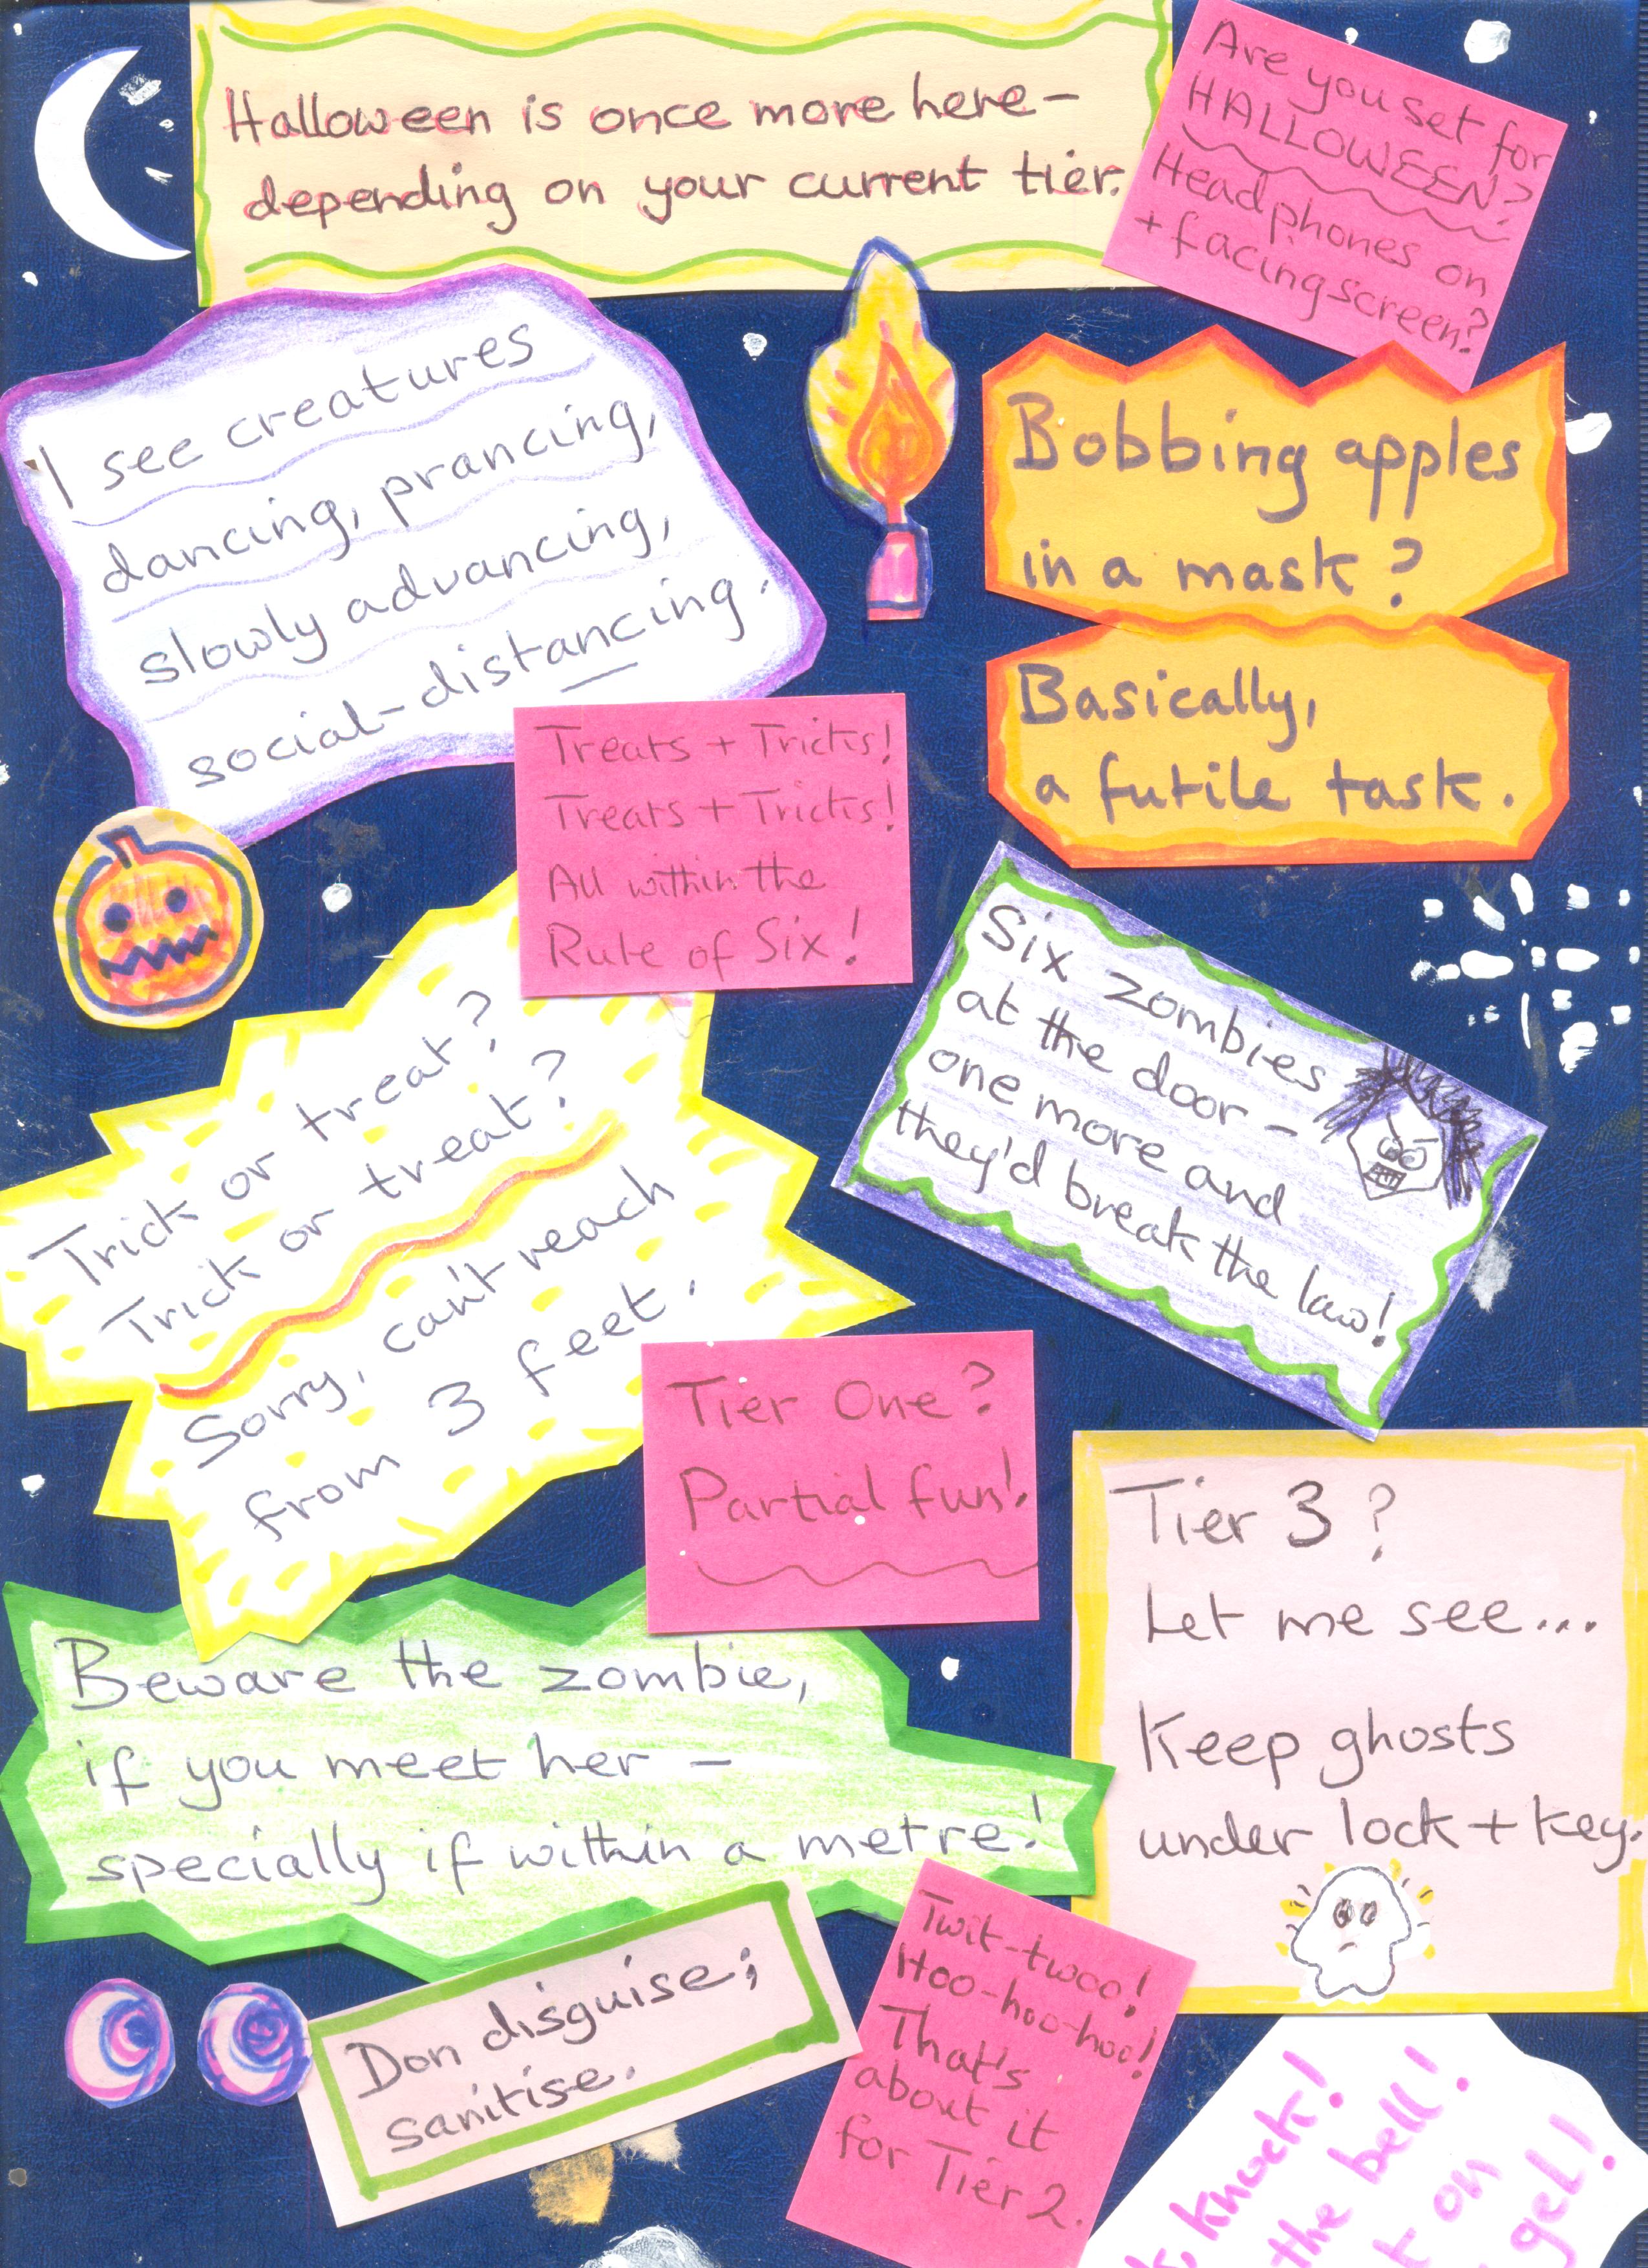 Halloween is once more here –
depending on your current tier.
Are you set for
HALLOWEEN?
Headphones on
+ facing screen?
I see creatures
dancing, prancing,
slowly advancing,
social-distancing.
Bobbing apples
in a mask?
Basically,
a futile task.
Treats + Tricks!
Treats + Tricks!
All within the
Rule of Six!
Six zombies
at the door –
one more and
they'd break the law!
Trick or treat?
Trick or treat?
Sorry, can't reach
from 3 feet.
Tier One?
Partial fun!
Tier 3?
Let me see...
Keep ghosts
under lock + key.
Beware the zombie,
if you meet her –
specially if within a metre!
Don disguise;
sanitise.
Twit-twoo!
Hoo-hoo-hoo!
That's
about it
for Tier 2.
knock!
the bell!
on
gel!